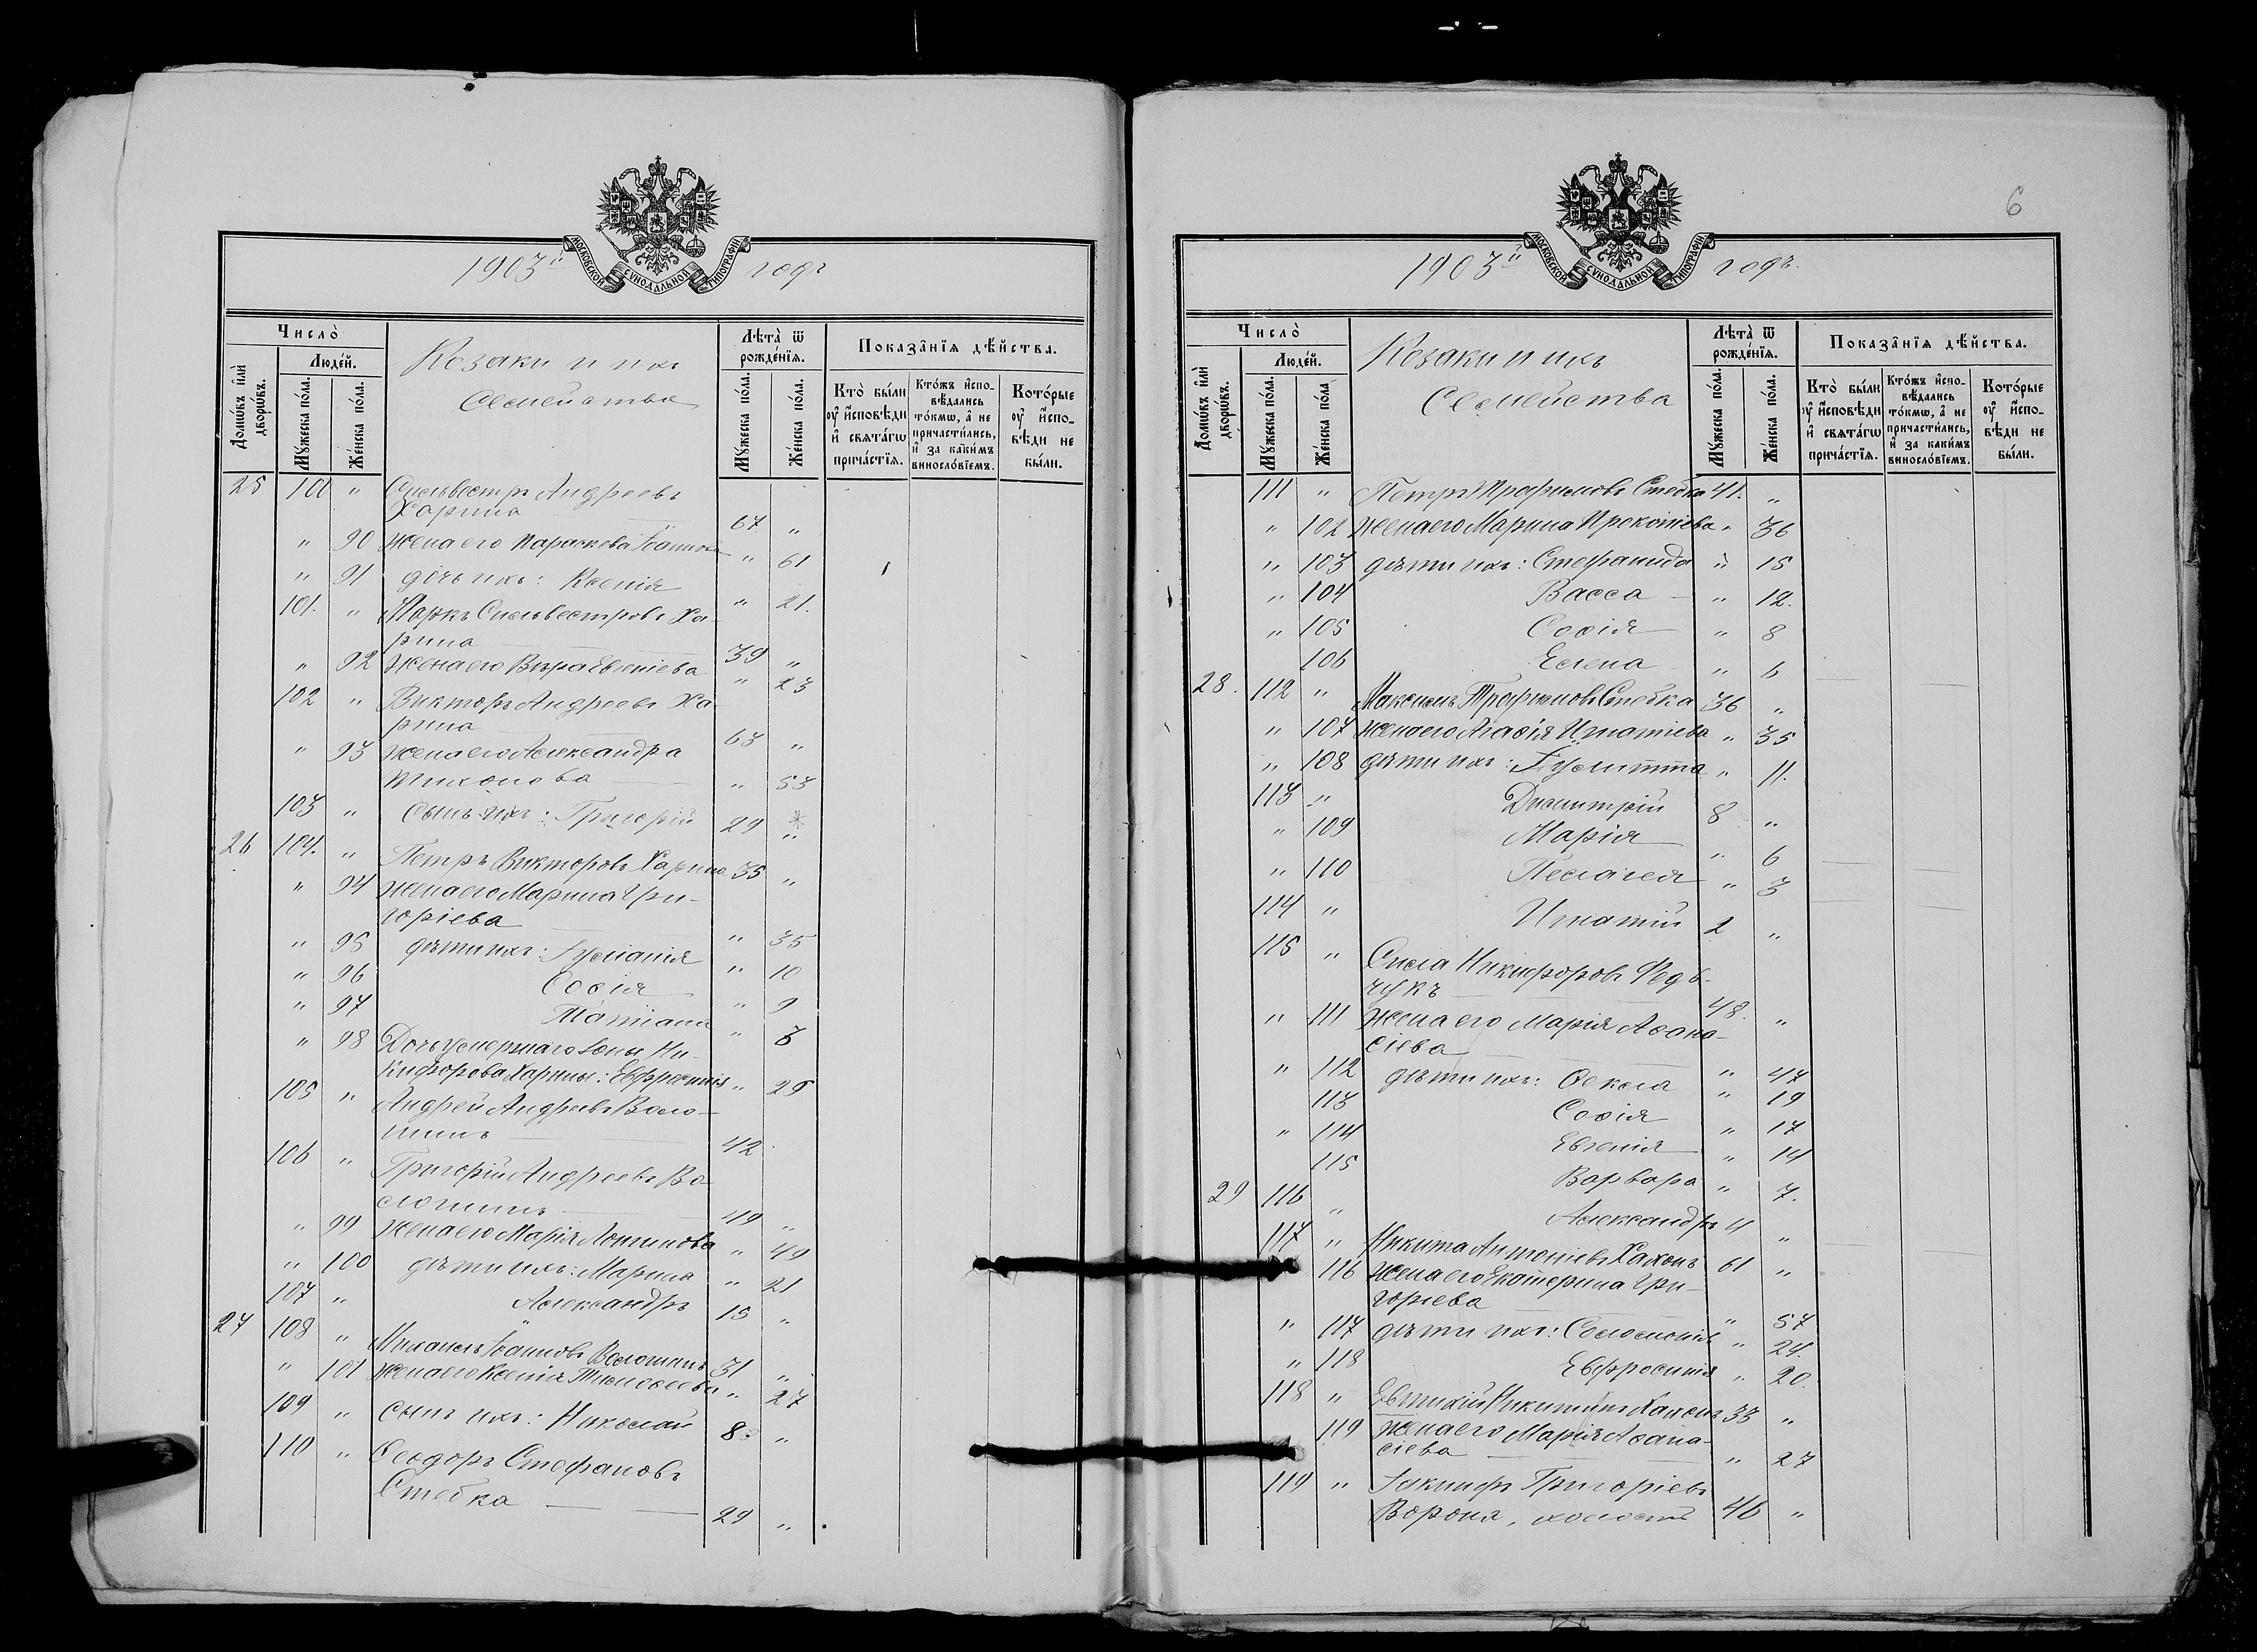 МОСКОВСКОЙ СѴНОДАЛЬНОЙ ТИПОГРАФІИ
1903й годъ
Число̀
Домѡ́въ и҆лѝ дворѡ́въ.
Люде́й.
Мꙋ́жеска по́ла.
Же́нска по́ла.
Козаки и ихъ
Семейства
Лѣта̀ ѿ рожде́нїѧ.
Мꙋ́жеска по́ла.
Же́нска по́ла.
Показа̑нїѧ дѣ́йства.
Кто̀ бы́ли ᲂу҆ и҆сповѣди и҆ свѧта́гѡ прича́стїѧ.
Кто́жъ и҆спо- вѣ́дались то́кмѡ, а҆ не причасти́лись, и҆ за каки́мъ винослѡ́вїемъ.
Кото́рые ᲂу҆ и҆спо- вѣ́ди не бы́ли.
25 100 " Сильвестръ Андреевъ
Харина 67 "
" 90 жена его Параскева Іоаннова " 61
" 91 дочь ихъ: Ксенія " 21.
101. " Маркъ Сильвестровъ Ха-
рина 39 "
" 92 жена его Вѣра Евгеніева " 23
102 " Викторъ Андреевъ Ха-
рина 63 "
" 93 жена его Александра
Тихонова " 53
103 " сынъ ихъ: Григорій 29 "
26 104. " Петръ Викторовъ Харина 35 "
" 94 жена его Марина Гри-
горіева " 35
" 95 дѣти ихъ: Іуліанія " 10
" 96 Софія " 9
" 97 Татіана " 3
" 98 Дочь умершаго Іоны Ни-
кифорова Харины: Евфросинія " 25
105 " Андрей Андреевъ Воло-
шинъ 42
106 " Григорій Андреевъ Во-
лошинъ 49 "
" 99 жена его Марія Логинова " 49
" 100 дѣти ихъ: Марина " 21
107 " Александръ 15 "
27 108 " Михаилъ Іоанновъ Волошинъ 31 "
" 101 жена его Ксенія Тимоѳеева " 27
109 " сынъ ихъ: Николай 8 "
110 " Ѳеодоръ Стефановъ
Стебка 29 "
6
МОСКОВСКОЙ СѴНОДАЛЬНОЙ ТИПОГРАФІИ
1903й годъ.
Число̀
Домѡ́въ и҆лѝ дворѡ́въ.
Люде́й.
Мꙋ́жеска по́ла.
Же́нска по́ла
Козаки и ихъ
Семейства
Лѣта̀ ѿ рожде́нїѧ.
Мꙋ́жеска по́ла.
Же́нска по́ла.
Показа̑нїѧ дѣ́йства.
Кто̀ бы́ли ᲂу҆ и҆сповѣди и҆ свѧта́гѡ прича́стїѧ.
Кто́жъ и҆спо- вѣ́дались то́кмѡ, а҆ не причасти́лись, и҆ за каки́мъ винослѡ́вїемъ.
Кото́рые ᲂу҆ и҆спо- вѣ́ди не бы́ли.
111 " Петръ Трофимовъ Стебка 41. "
" 102 жена его Марина Прокопіева " 36
" 103 дѣти ихъ: Стефанида " 15
" 104 Васса " 12.
" 105 Софія " 8
106 Елена " 6
28. 112 " Максимъ Трофимовъ Стебка 36 "
" 107 жена его Агафія Игнатіева " 35
" 108 дѣти ихъ: Іулитта " 11.
113 " Димитрій 8 "
" 109 Марія " 6
" 110 Пелагея " 3
114 " Игнатій 2 "
115 " Сила Никифоровъ Федь-
чукъ 48. "
" 111 жена его Марія Аѳана-
сіева " 47
" 112 дѣти ихъ: Ѳекла " 19
113 Софія " 17
" 114 Евгенія " 14
115 Варвара " 7.
29 116 " Александръ 4 "
117 " Никита Антоніевъ Хахонъ 61 "
116 жена его Екатерина Гри-
горіева " 57
" 117 дѣти ихъ: Соломонія " 24.
" 118 Евфросинія " 20.
118 " Евтихій Никитинъ Хахонъ 33 "
119 жена его Марія Аѳана-
сіева " 27
119 " Іакинфъ Григоріевъ
Ворона, холостъ 46 "